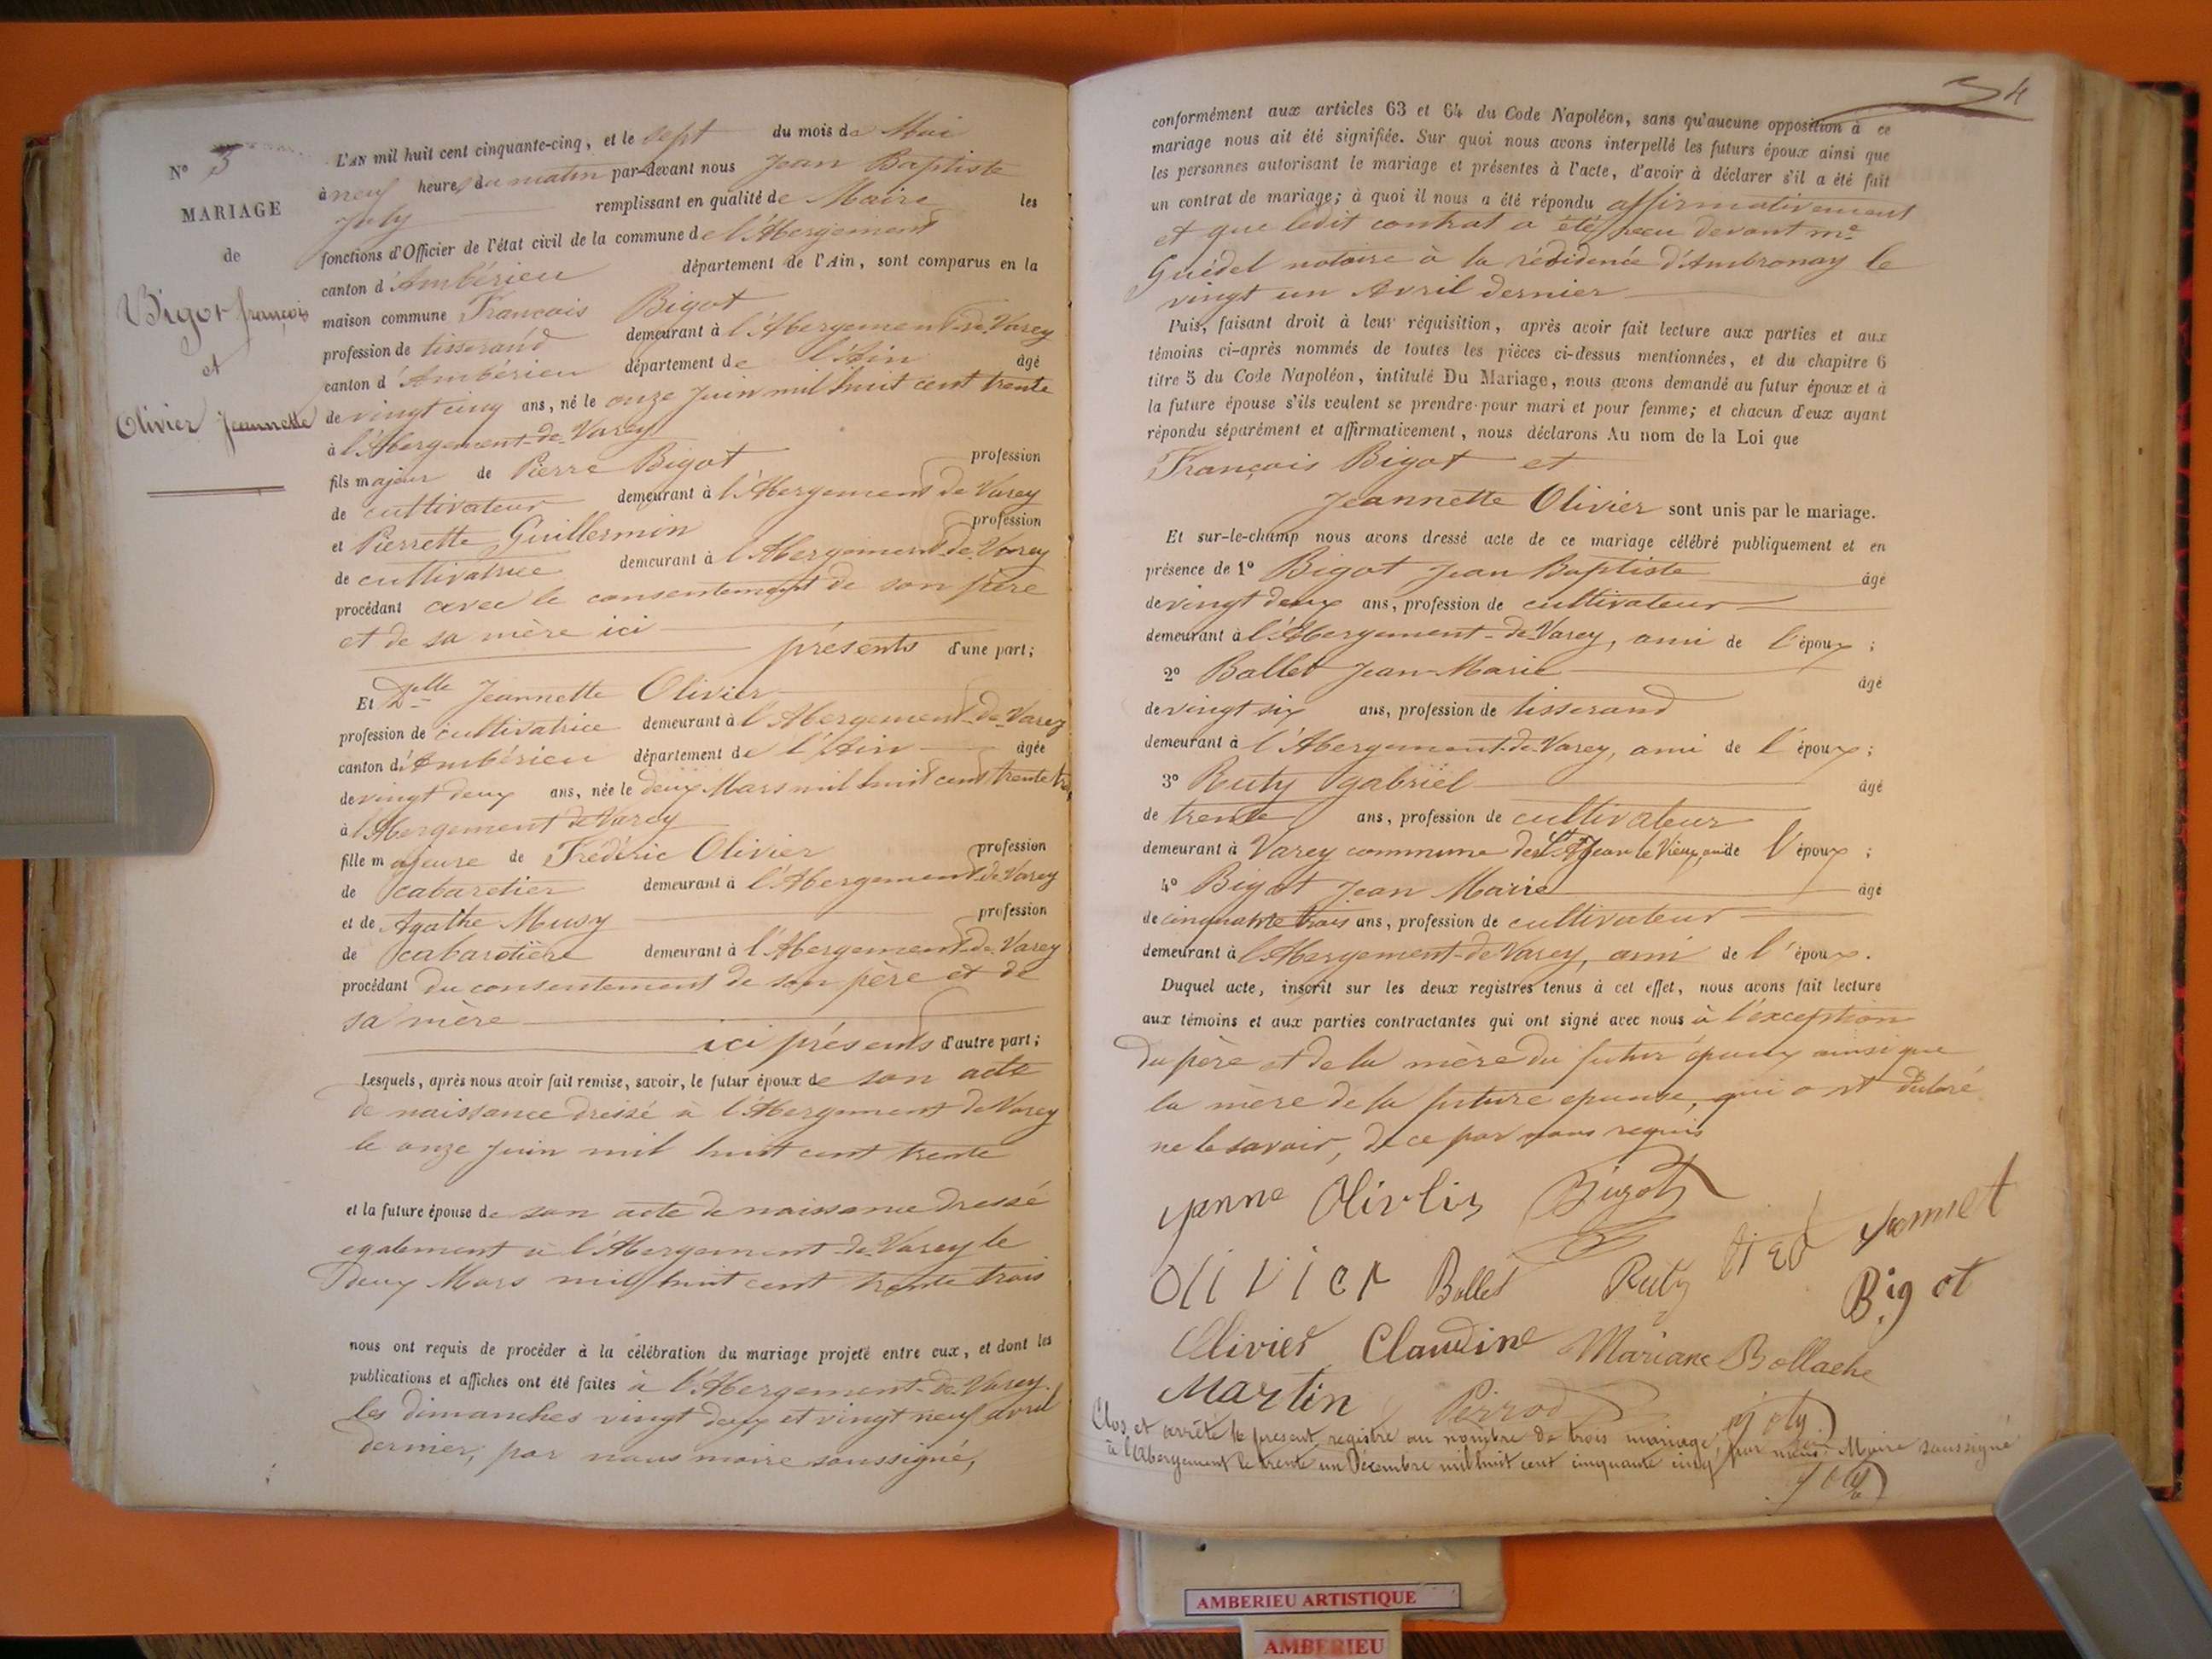 N° 3
MARIAGE
de
Bigot françois
et
Olivier Jeannette
L'AN mil huit cent cinquante-cinq, et le sept du mois de Mai
à neuf heures du matin par-devant nous Jean Baptiste
Joly remplissant en qualité de Maire les
fonctions d'Officier de l'état civil de la commune de l'Abergement
canton d'Ambérieu département de l'Ain, sont comparus en la
maison commune François Bigot
profession de tisserand demeurant à l'Abergement-de-Varey
canton d'Ambérieu département de l'Ain âgé
de vingt cinq ans, né le onze Juin mil huit cent trente
à l'Abergement-de-Varey
fils majeur de Pierre Bigot profession
de cultivateur demeurant à l'Abergement de Varey
et Pierrette Guillermin profession
de cultivatrice demeurant à l'Abergement-de-Varey
procédant avec le consentement de son père
et de sa mère ici
présents d'une part;
Et Delle Jeannette Olivier
profession de cultivatrice demeurant à l'Abergement-de-Varey
canton d'Ambérieu département de l'Ain âgée
de vingt deux ans, née le deux Mars mil huit cent trente trois
à l'Abergement de Varey
fille majeure de Frédéric Olivier profession
de cabaretier demeurant à l'Abergement de Varey
et de Agathe Musy profession
de cabaretière demeurant à l'Abergement-de-Varey
procédant du consentement de son père et de
sa mère
ici présents d'autre part;
Lesquels, après nous avoir fait remise, savoir, le futur époux de son acte
de naissance dressé à l'Abergement de Varey
le onze Juin mil huit cent trente
et la future épouse de son acte de naissance dressé
egalement à l'Abergement-de-Varey le
deux Mars mil huit cent trente trois
nous ont requis de procéder à la célébration du mariage projeté entre eux, et dont les
publications et affiches ont été faites à l'Abergement-de-Varey.
les dimanches vingt deux et vingt neuf avril
dernier, par nous maire soussigné,
54
conformément aux articles 63 et 64 du Code Napoléon, sans qu'aucune opposition à ce
mariage nous ait été signifiée. Sur quoi nous avons interpellé les futurs époux ainsi que
les personnes autorisant le mariage et présentes à l'acte, d'avoir à déclarer s'il a été fait
un contrat de mariage; à quoi il nous a été répondu affirmativement
et que ledit contrat a été reçu devant me
Guédel notaire à la résidence d'Ambronay le
vingt un Avril dernier
Puis, faisant droit à leur réquisition, après avoir fait lecture aux parties et aux
témoins ci-après nommés de toutes les pièces ci-dessus mentionnées, et du chapitre 6
titre 5 du Code Napoléon, intitulé Du Mariage, nous avons demandé au futur époux et à
la future épouse s'ils veulent se prendre pour mari et pour femme; et chacun d'eux ayant
répondu séparément et affirmativement, nous déclarons Au nom de la Loi que
François Bigot et
Jeannette Olivier sont unis par le mariage.
Et sur-le-champ nous avons dressé acte de ce mariage célébré publiquement et en
présence de 1° Bigot Jean Baptiste âgé
de vingt deux ans, profession de cultivateur
demeurant à l'Abergement-de-Varey, ami de l'époux;
2° Ballet Jean-Marie âgé
de vingt six ans, profession de tisserand
demeurant à l'Abergement-de-Varey, ami de l'époux;
3° Ruty gabriël âgé
de trente ans, profession de cultivateur
demeurant à Varey commune de St Jean le Vieux, ami de l'époux;
4° Bigot Jean Marie âgé
de cinquante trois ans, profession de cultivateur
demeurant à l'Abergement-de-Varey, ami de l'époux.
Duquel acte, inscrit sur les deux registres tenus à cet effet, nous avons fait lecture
aux témoins et aux parties contractantes qui ont signé avec nous à l'exception
du père et de la mère du futur époux ainsi que
la mère de la future epouse, qui ont déclaré
ne le savoir, de ce par nous requis
Olivier Bigot
olivier Ballet Ruty Bigot
Olivier Claudine Mariane Bollache
Martin Perrod Joly
Clos et arrêté le present registre au nombre de trois mariage, par nous Maire soussigné
à l'Abergement le trente un Décembre mil huit cent cinquante cinq
Joly
AMBERIEU ARTISTIQUE
AMBERIEU